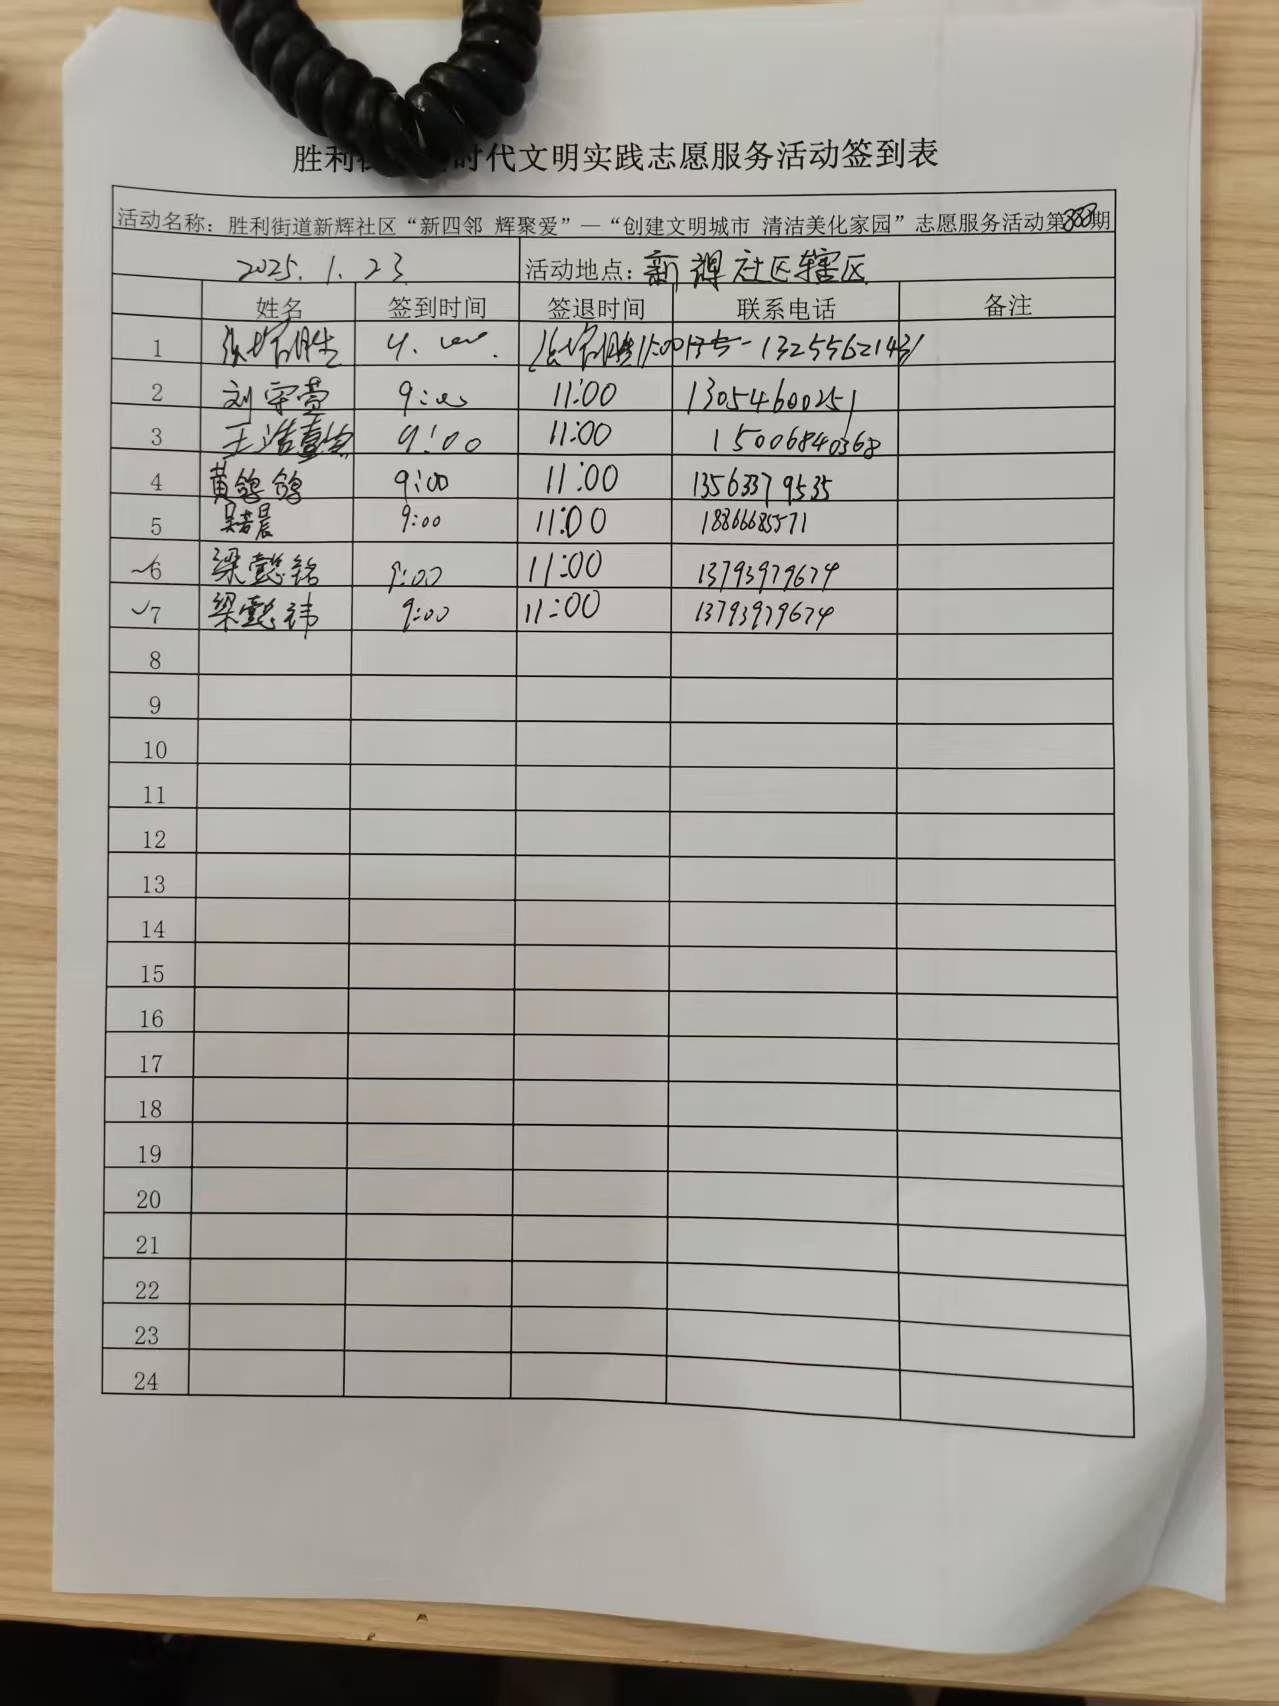 胜利街 时代文明实践志愿服务活动签到表
活动名称：胜利街道新辉社区“新四邻 辉聚爱”—“创建文明城市 清洁美化家园”志愿服务活动第 期
2025.1.23 活动地点：新辉社区辖区
姓名 签到时间 签退时间 联系电话 备注
1 11:00 13255621431
2 刘宇萱 9:00 11:00 13054600251
3 9:00 11:00 15006840368
4 黄鸽鸽 9:00 11:00 13563379535
5 吴若晨 9:00 11:00 18866685571
6 梁懿铭 9:00 11:00 13793979674
7 梁懿祎 9:00 11:00 13793979674
8
9
10
11
12
13
14
15
16
17
18
19
20
21
22
23
24